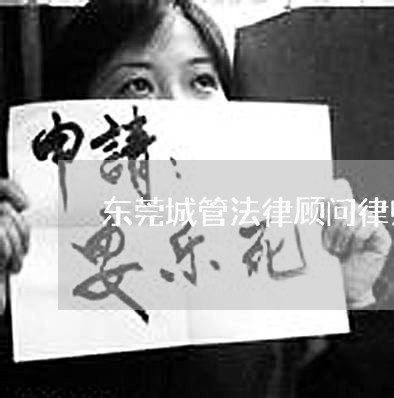 申請：
东莞城管法律顾问律
安乐死